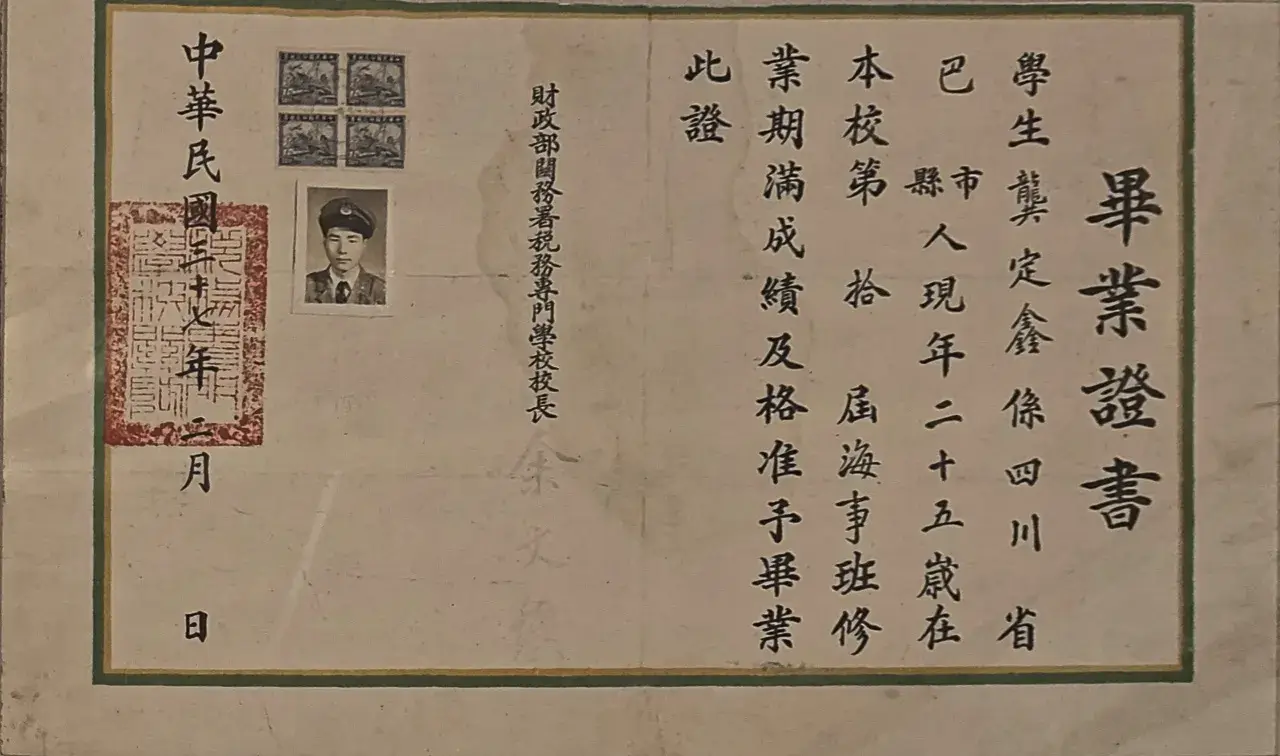 畢業證書
學生龔定鑫係四川省
巴縣市人現年二十五歲在
本校第拾屆海事班修
業期滿成績及格准予畢業
此證
財政部關務署稅務專門學校校長
余文
中華民國三十七年二月日